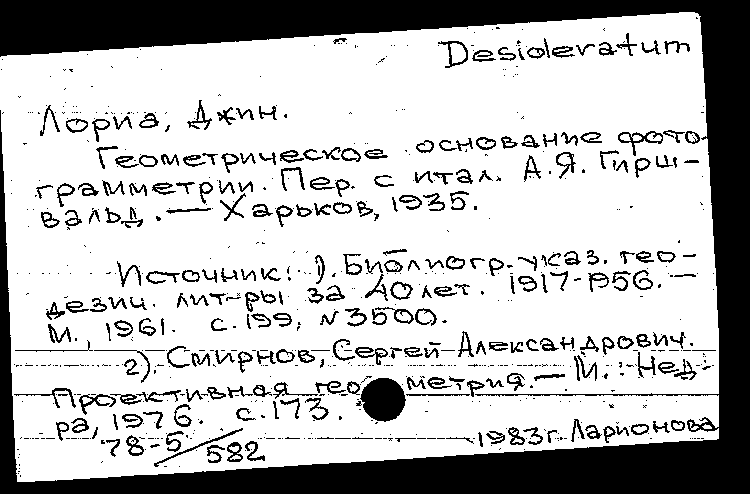 Desideratum
Лориа, Джин.
Геометрическое основание фото-
грамметрии. Пер. с итал. А.Я. Гирш-
вальд. — Харьков, 1935.
Источник: 1). Библиогр. указ. гео-
дезич. лит-ры за 40 лет. 1917-1956. —
М., 1961. с. 199, N 3500.
2). Смирнов, Сергей Александрович.
Проективная геометрия. — М.: Нед-
ра, 1976. с. 173.
78-5/582
1983г. Ларионова